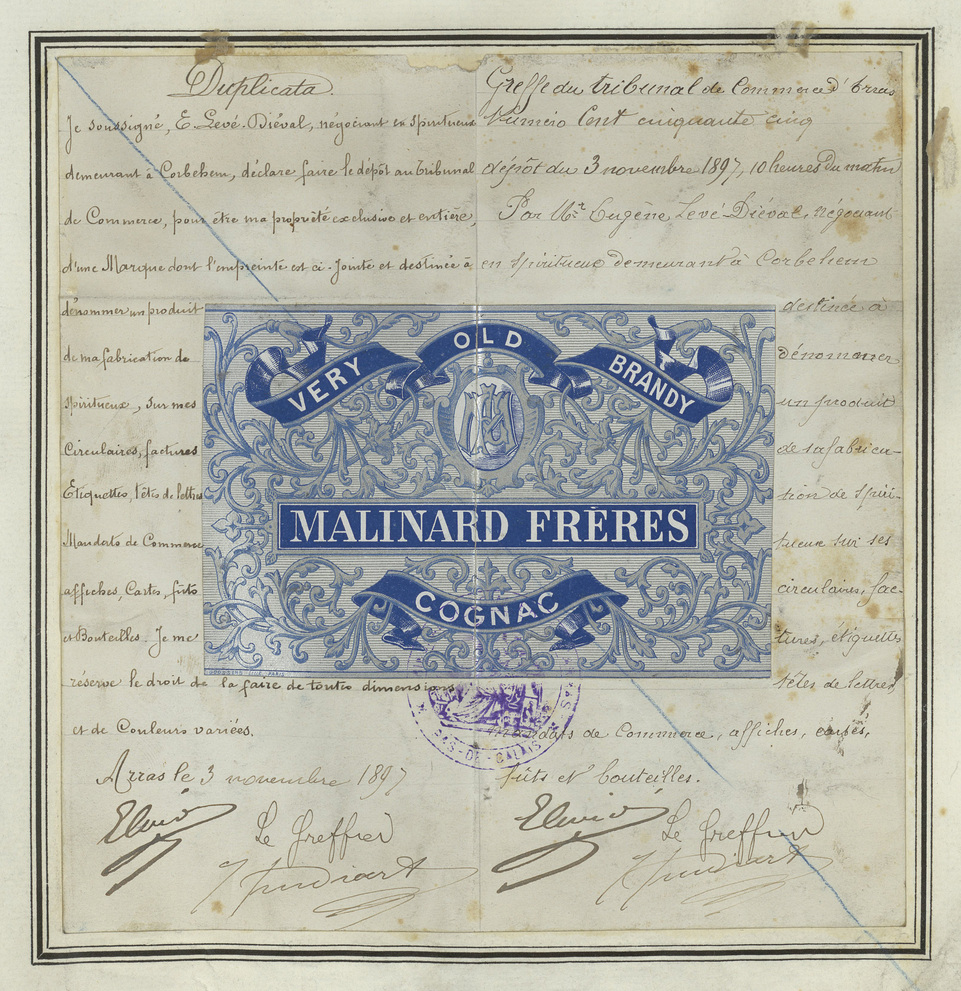 Duplicata.
Je soussigné, E. Levé-Diéval, négociant en spiritueux
demeurant à Corbehem, déclare faire le dépôt au Tribunal
de Commerce, pour être ma propriété exclusive et entière,
d'une Marque dont l'empreinte est ci-Jointe et destinée à
dénommer un produit
de ma fabrication de
spiritueux, sur mes
Circulaires, factures
Etiquettes, têtes de lettres
Mandats de Commerce
affiches, Cartes, fûts
et Bouteilles. Je me
réserve le droit de la faire de toutes dimensions
et de Couleurs variées.
Arras le 3 novembre 1897
Le Greffier
Greffe du tribunal de Commerce d'Arras
Numéro Cent cinquante cinq
dépôt du 3 novembre 1897, 10 heures du matin
Par Mr Eugène Levé Diéval, négociant
en spiritueux demeurant à Corbehem
destinée à
dénommer
un produit
de sa fabrica-
tion de spiri-
tueux sur ses
circulaires, fac-
tures, étiquettes
têtes de lettres
de Commerce, affiches,
fûts et bouteilles.
Le Greffier
VERY OLD BRANDY
MALINARD FRÈRES
COGNAC
PAS-DE-CALAIS